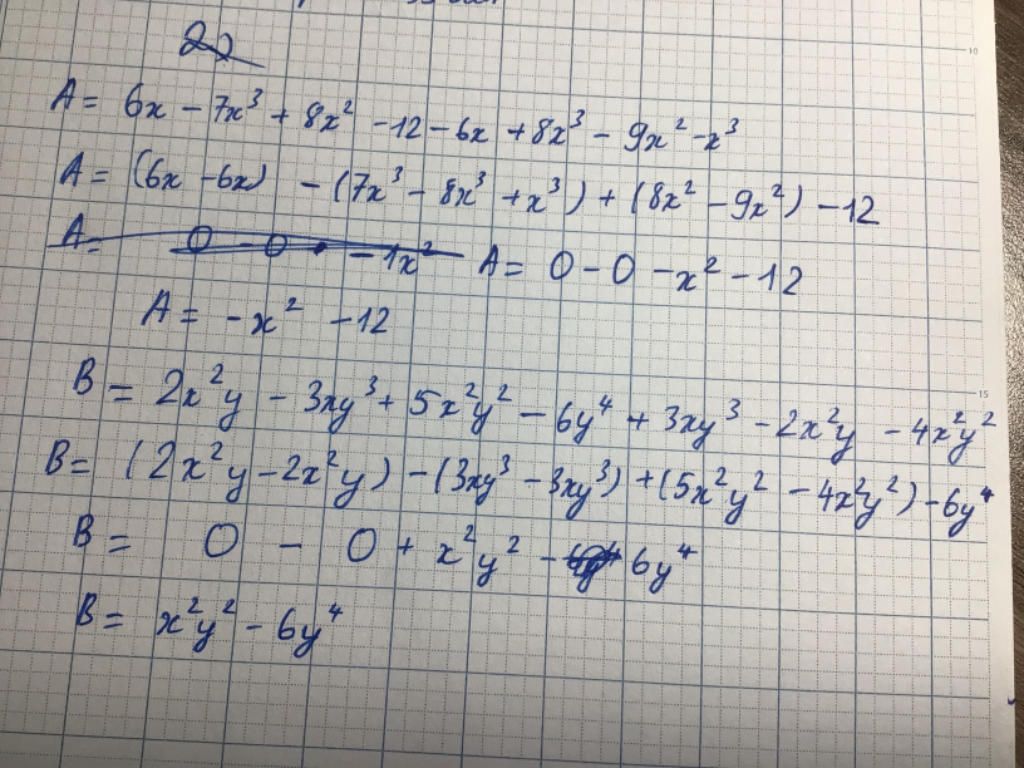 22
A = 6x - 7x³ + 8x² - 12 - 6x + 8x³ - 9x² - x³
A = (6x - 6x) - (7x³ - 8x³ + x³) + (8x² - 9x²) - 12
A = 0 - 0 - 1x² A = 0 - 0 - x² - 12
A = - x² - 12
B = 2x²y - 3xy³ + 5x²y² - 6y⁴ + 3xy³ - 2x²y - 4x²y²
B = (2x²y - 2x²y) - (3xy³ - 3xy³) + (5x²y² - 4x²y²) - 6y⁴
B = 0 - 0 + x²y² - 6y⁴
B = x²y² - 6y⁴
10
15